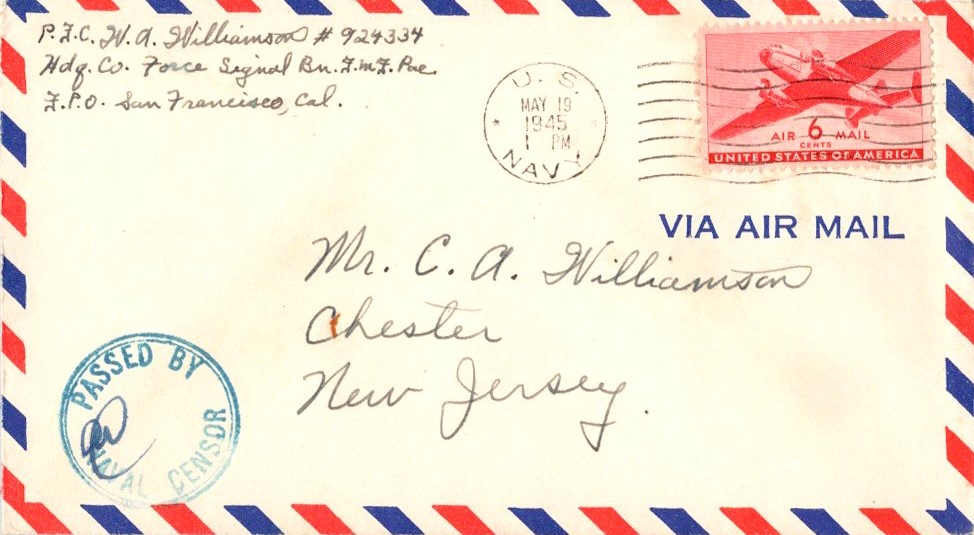 P.F.C. W. A. Williamson # 924334
Hdq. Co. Force Signal Bn. F.M.F. Pac.
F.P.O. San Francisco, Cal.
U. S.
MAY 19
1945
1 PM
NAVY
AIR 6 MAIL
CENTS
UNITED STATES OF AMERICA
VIA AIR MAIL
Mr. C. A. Williamson
Chester
New Jersey.
PASSED BY
NAVAL CENSOR